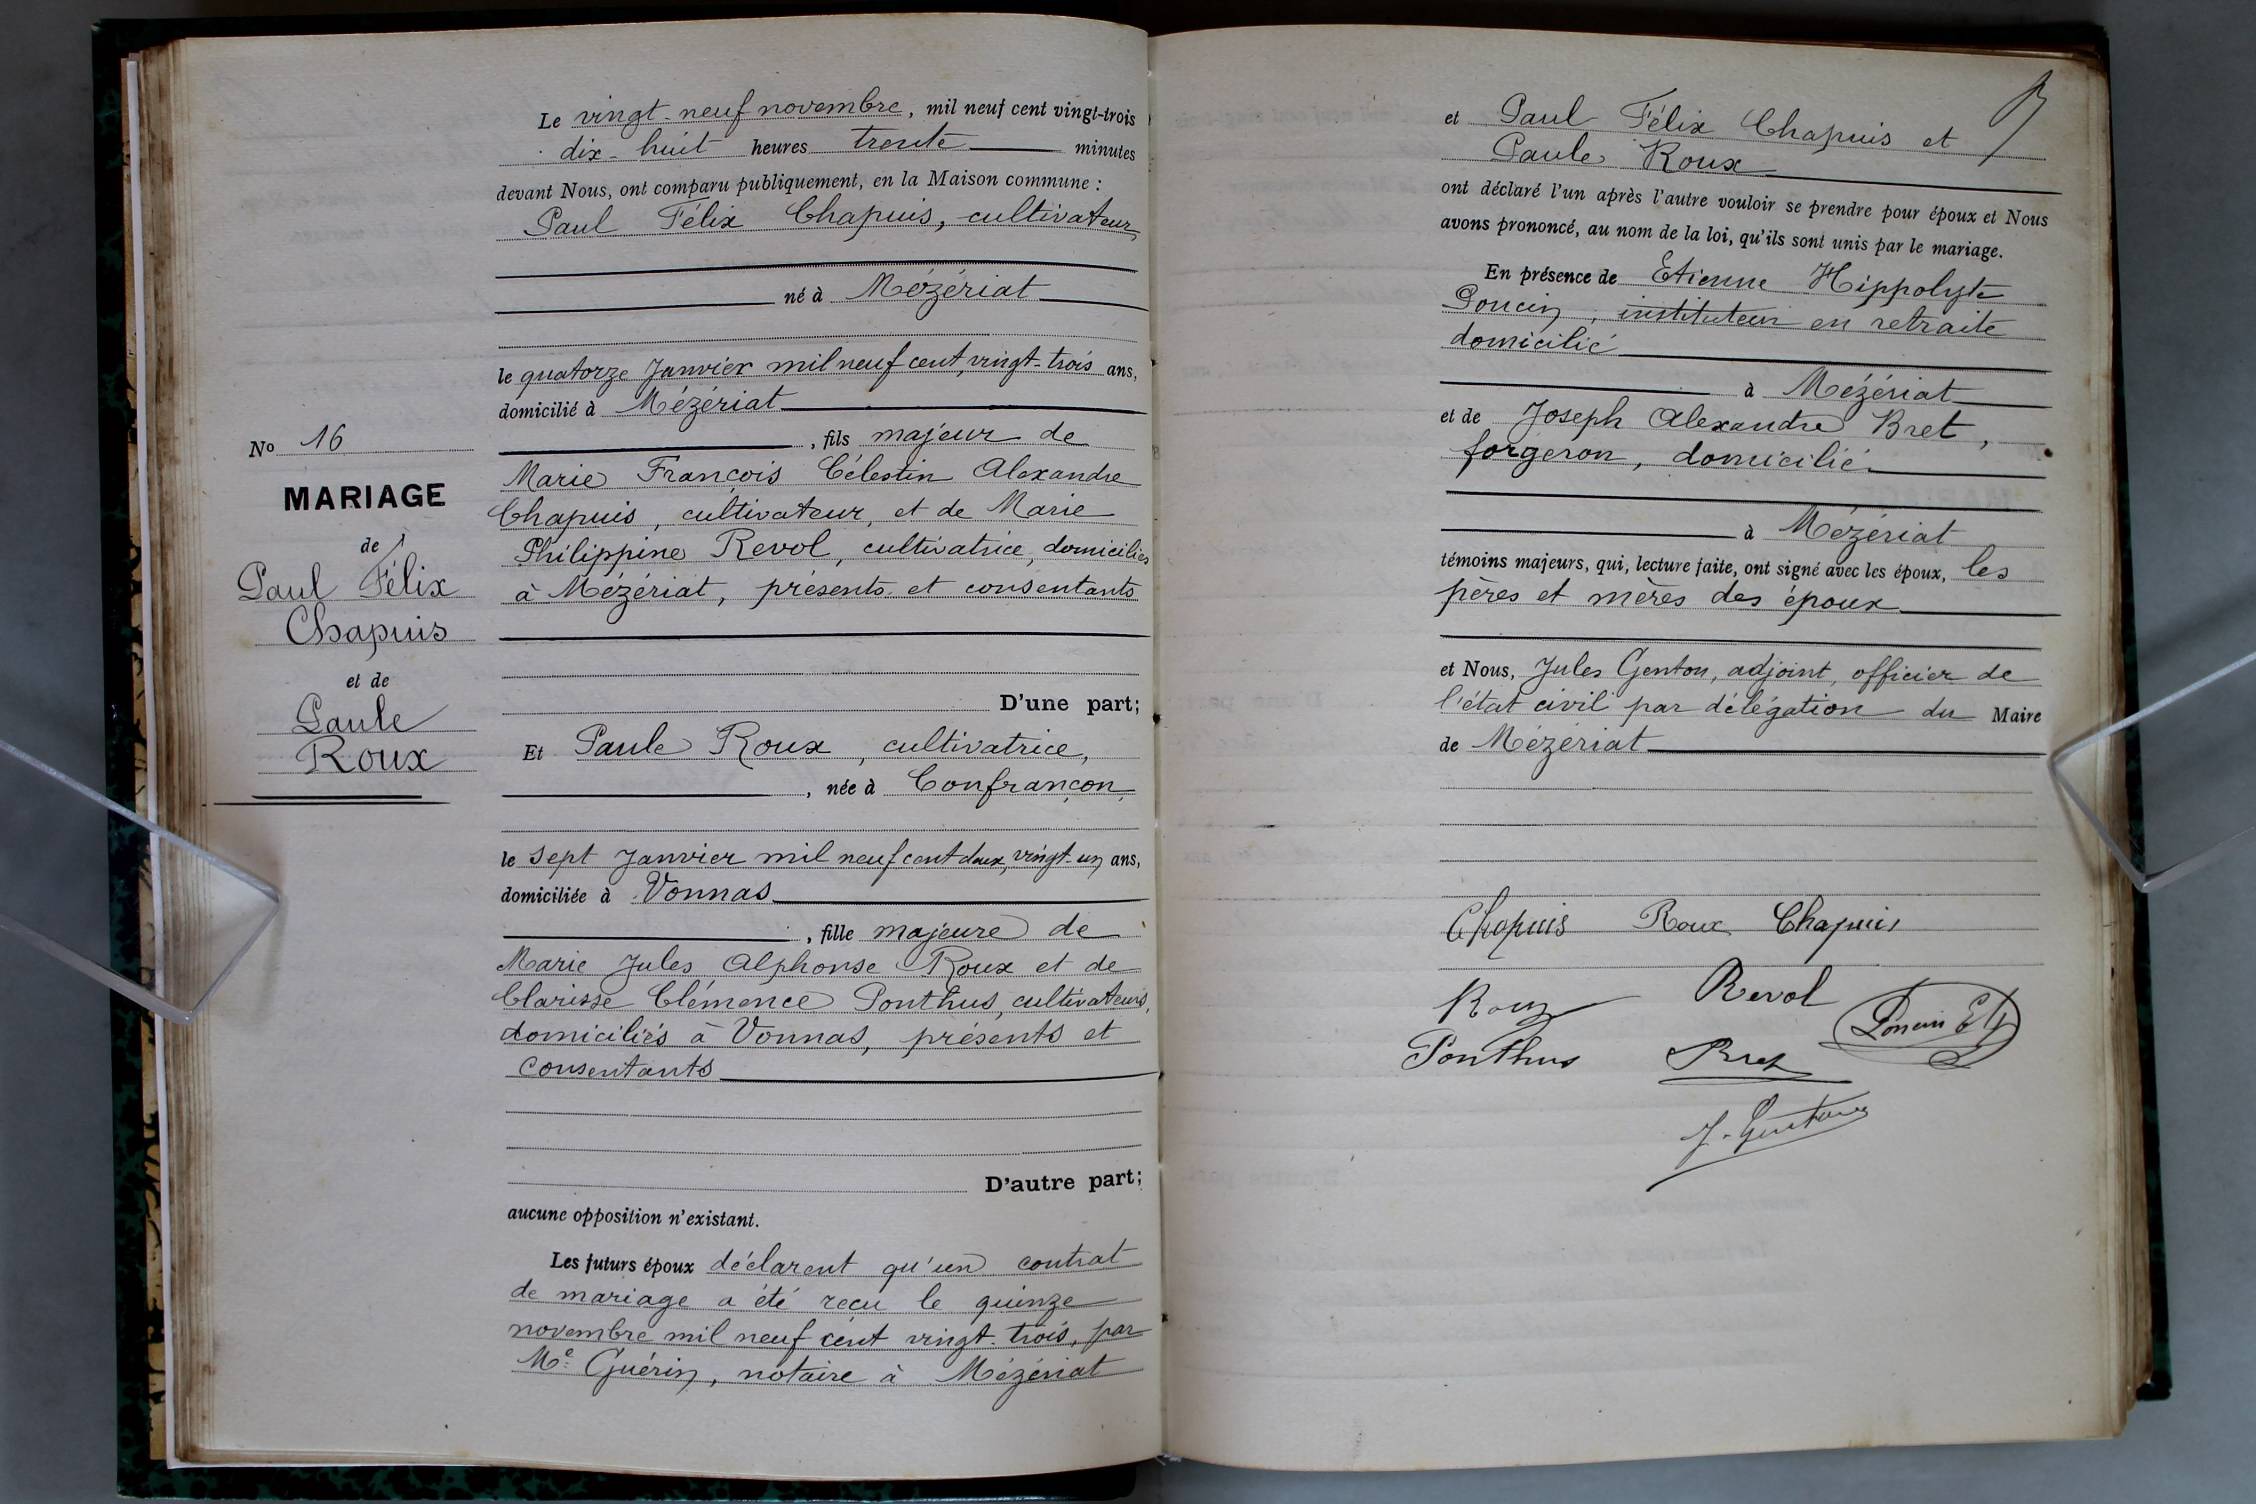 Le vingt-neuf novembre, mil neuf cent vingt-trois
dix-huit heures trente minutes
devant Nous, ont comparu publiquement, en la Maison commune :
Paul Félix Chapuis, cultivateur,
né à Mézériat
le quatorze Janvier mil neuf cent, vingt-trois ans,
domicilié à Mézériat
, fils majeur de
Marie François Célestin Alexandre
Chapuis, cultivateur, et de Marie
Philippine Revol, cultivatrice, domiciliés
à Mézériat, présents et consentants
D'une part;
Et Paule Roux, cultivatrice,
, née à Confrançon,
le sept Janvier mil neuf cent deux, vingt-un ans,
domiciliée à Vonnas
, fille majeure de
Marie Jules Alphonse Roux et de
Clarisse Clémence Ponthus, cultivateurs,
domiciliés à Vonnas, présents et
consentants
D'autre part;
aucune opposition n'existant.
Les futurs époux déclarent qu'un contrat
de mariage a été reçu le quinze
novembre mil neuf cent vingt-trois, par
Me Guérin, notaire à Mézériat
No 16
MARIAGE
de
Paul Félix
Chapuis
et de
Paule
Roux
et Paul Félix Chapuis et
Paule Roux
ont déclaré l'un après l'autre vouloir se prendre pour époux et Nous
avons prononcé, au nom de la loi, qu'ils sont unis par le mariage.
En présence de Etienne Hippolyte
Poncin, instituteur en retraite
domicilié
à Mézériat
et de Joseph Alexandre Bret,
forgeron, domicilié
à Mézériat
témoins majeurs, qui, lecture faite, ont signé avec les époux, les
pères et mères des époux
et Nous, Jules Genton, adjoint, officier de
l'état civil par délégation du Maire
de Mézériat
Chapuis Roux Chapuis
Roux Revol
Poncin
Ponthus Bret
J. Genton